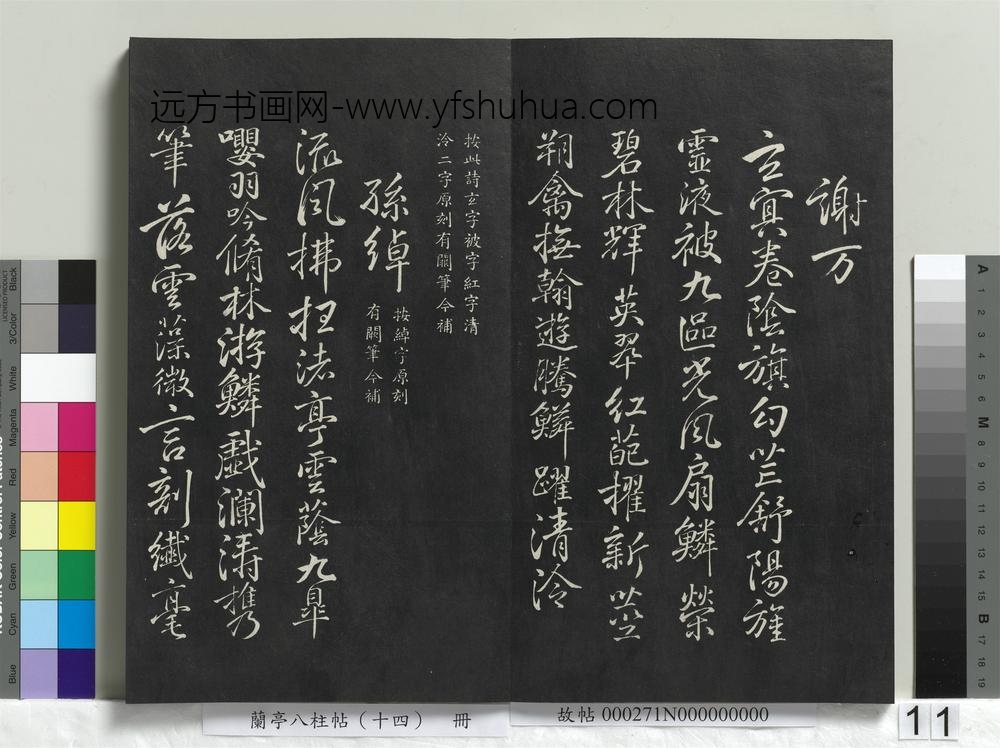 远方书画网-www.yfshuhua.com
謝万
玄冥卷陰旗勾芒舒陽旌
靈液被九區光風扇鱗榮
碧林輝英翠紅葩擢新莖
翔禽撫翰遊騰鱗躍清泠
按此詩玄字被字紅字清
泠二字原刻有闕筆今補
孫綽
按綽字原刻
有闕筆今補
流風拂枉渚亭雲蔭九皐
嚶羽吟脩林游鱗戲瀾濤携
筆落雲藻微言剖纖毫
蘭亭八柱帖（十四） 冊
故帖 000271N000000000
11
Black
3/Color
White
Magenta
Red
Yellow
Green
Cyan
Blue
A
1
2
3
4
5
6
M
8
9
10
11
12
13
14
15
B
17
18
19